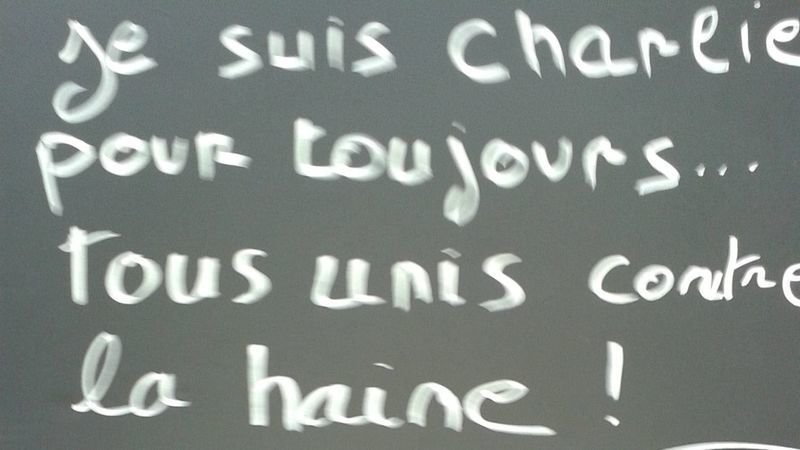 je suis charlie
pour toujours...
Tous unis contre
la haine !